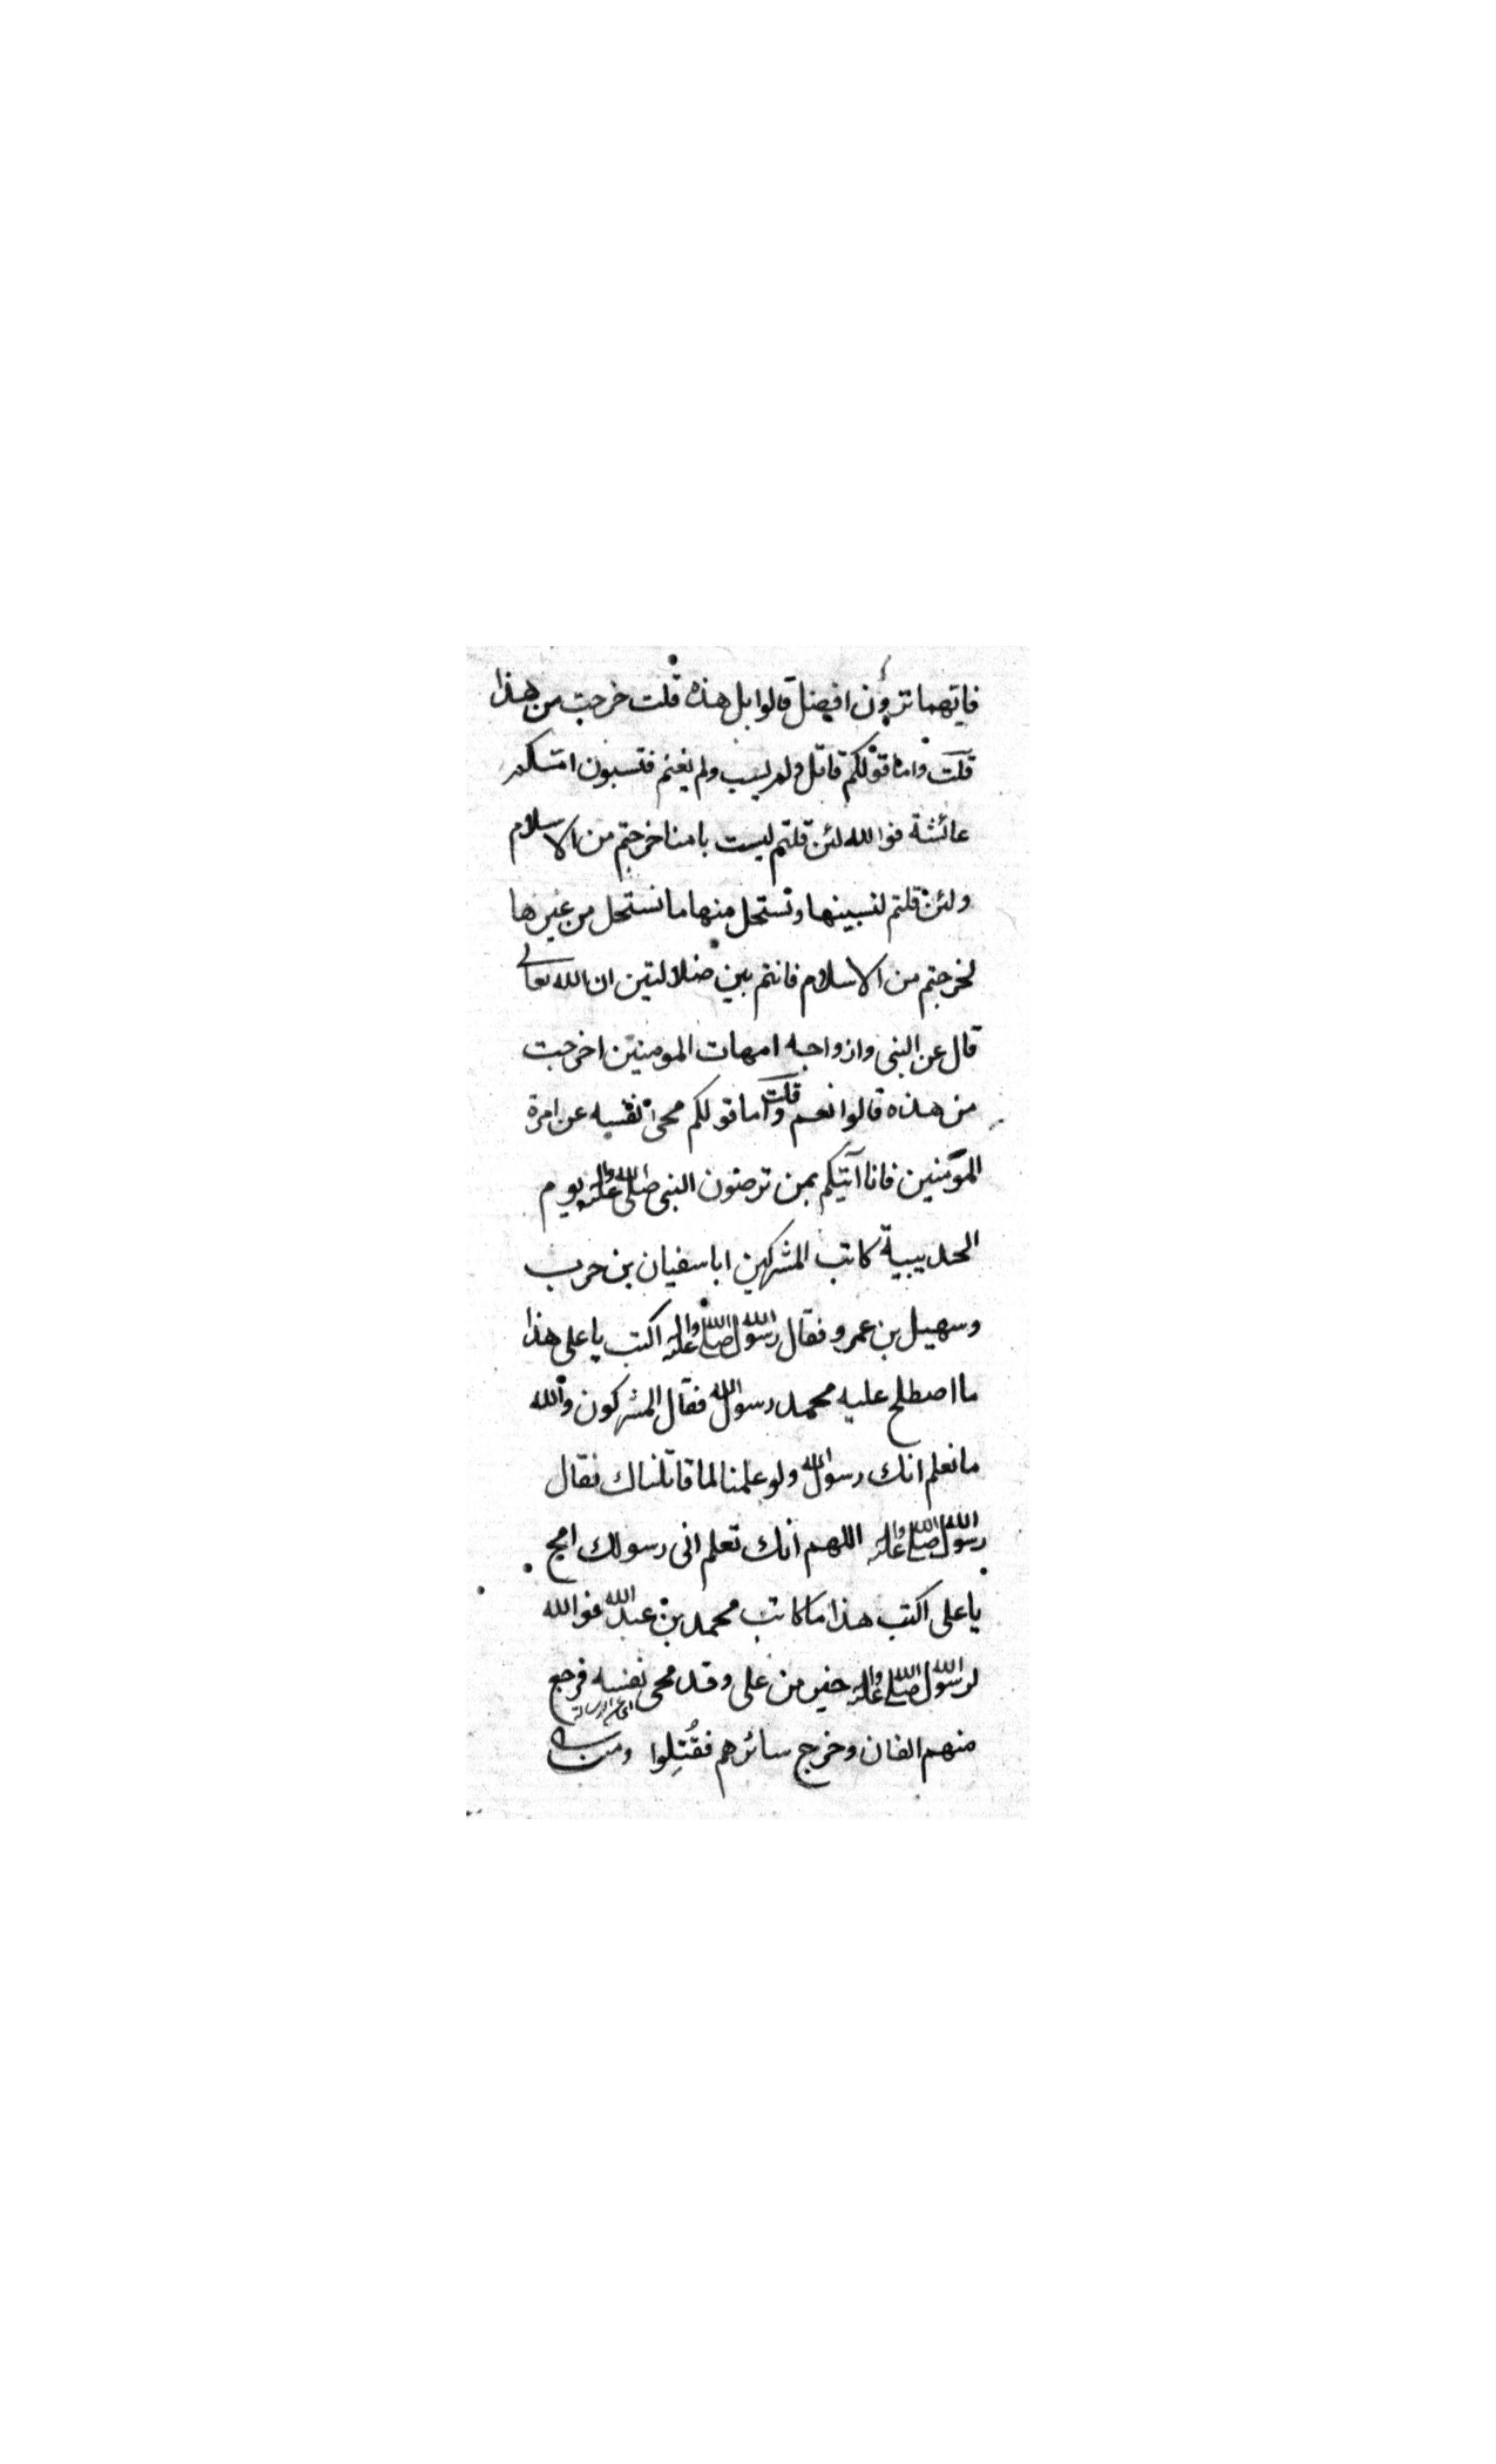 فايهما ترون افضل قالوا بل هذه قلت خرجت من هذا
قلت واما قولكم قاتل ولم يسب ولم يغنم فتسبون امتكم
عائشة فوالله لئن قلتم ليست بامنا خرجتم من الاسلام
ولئن قلتم لنسبينها ونستحل منها ما نستحل من غيرها
لخرجتم من الاسلام فانتم بين ضلالتين ان الله تعالى
قال عن النبى وازواجه امهات المومنين اخرجت
من هذه قالوا نعم قلت واما قولكم محى نفسه عن امرة
المؤمنين فانا آتيكم بمن ترضون النبى صلى الله عليه واله يوم
الحديبية كاتب المشركين ابا سفيان بن حرب
وسهيل بن عمرو فقال رسول الله صلى الله عليه واله اكتب يا على هذا
ما اصطلح عليه محمد رسول الله فقال المشركون والله
ما نعلم انك رسول الله ولو علمنا لما قاتلناك فقال
رسول الله صلى الله عليه واله اللهم انك تعلم انى رسولك امح
يا على اكتب هذا ما كاتب محمد بن عبد الله فوالله
لرسول الله صلى الله عليه واله خير من على وقد محى نفسه فرجع
منهم الفان وخرج سائرهم فقتلوا